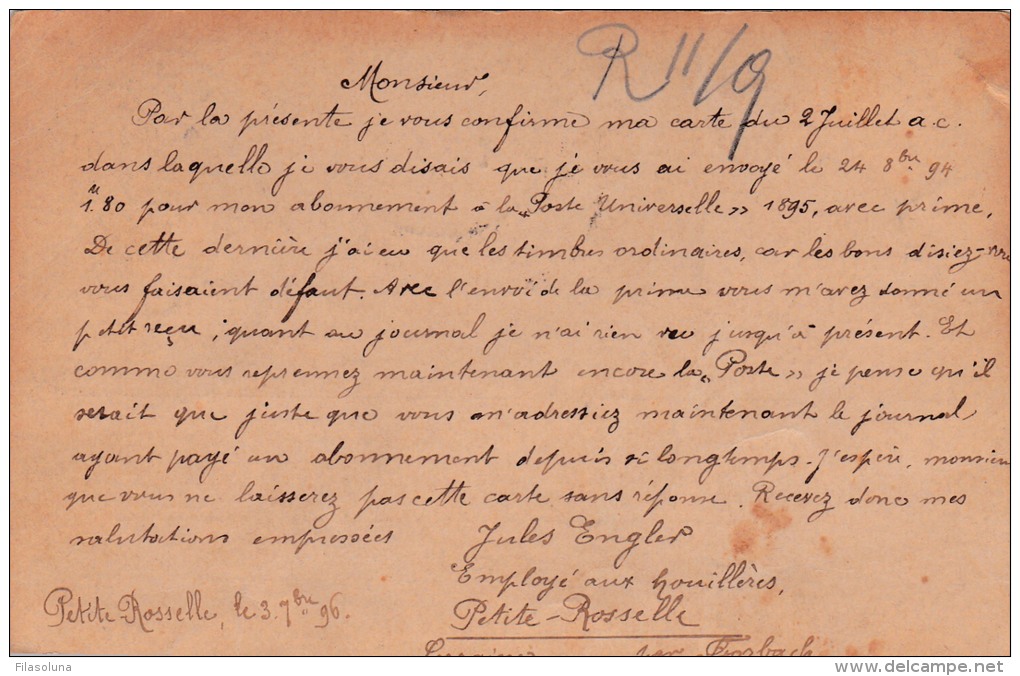 R 11/9
Monsieur,
Par la présente je vous confirme ma carte du 2 Juillet a.c.
dans laquelle je vous disais que je vous ai envoyé le 24 8bre 94
1.80 pour mon abonnement à la „Poste Universelle” 1895, avec prime.
De cette dernière j'ai eu que les timbres ordinaires, car les bons disiez-
vous faisaient défaut. Avec l'envoi de la prime vous m'avez donné un
petit reçu; quant au journal je n'ai rien vu jusqu'à présent. Et
comme vous reprennez maintenant encore la „Poste” je pense qu'il
serait que juste que vous m'adressiez maintenant le journal
ayant payé un abonnement depuis si longtemps. J'espère, monsieu
que vous ne laisserez pas cette carte sans réponse. Recevez donc mes
salutations empressées Jules Engler
Employé aux houillères,
Petite-Rosselle, le 3.7bre 96. Petite-Rosselle
Lorraine per Forbach
Filasoluna
www.delcampe.net